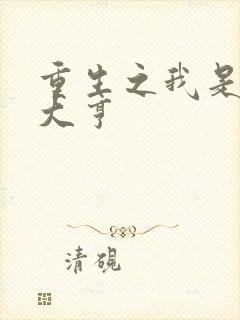 重生之我是
大亨
清砚